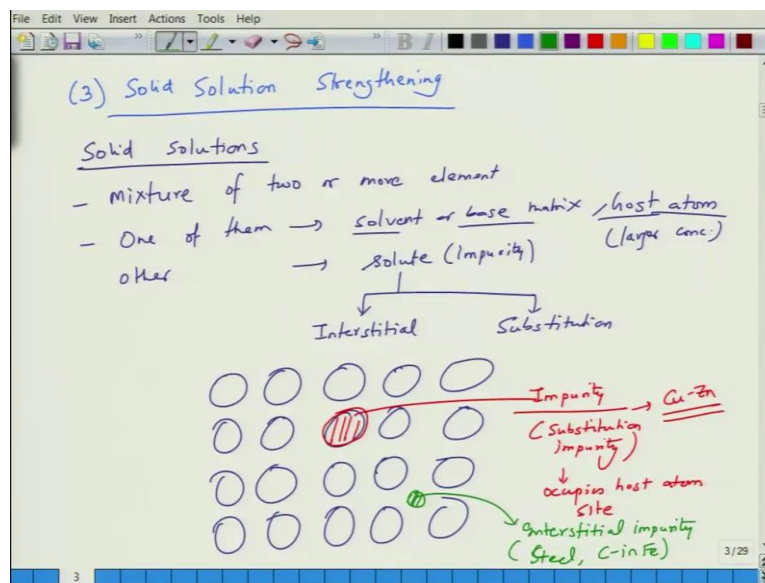 File Edit View Insert Actions Tools Help
B I
(3) Solid Solution Strengthening
Solid Solutions
- Mixture of two or more element
- One of them → solvent or base matrix, host atom
(larger conc.)
other → solute (Impurity)
Interstitial Substitution
Impurity → Cu-Zn
(Substitution
impurity)
occupies host atom
site
Interstitial impurity
(Steel, C-in Fe)
3/29
3